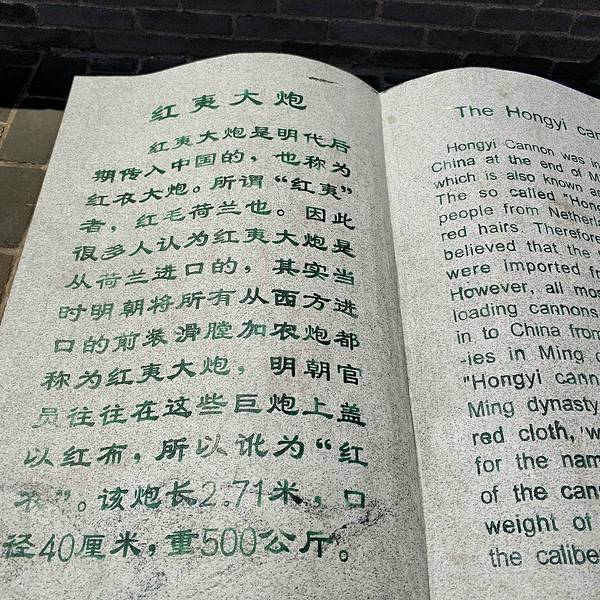 红夷大炮
红夷大炮是明代后
期传入中国的，也称为
红衣大炮。所谓“红夷”
者，红毛荷兰也。因此
很多人认为红夷大炮是
从荷兰进口的，其实当
时明朝将所有从西方进
口的前装滑膛加农炮都
称为红夷大炮，明朝官
员往往在这些巨炮上盖
以红布，所以讹为“红
衣”。该炮长2.71米，口
径40厘米，重500公斤。
The Hongyi can
Hongyi Cannon was in
China at the end of M
which is also known as
The so called "Hon
people from Netherla
red hairs. Therefore
believed that the
were imported fr
However, all mos
loading cannons
in to China from
-ies in Ming
"Hongyi cann
Ming dynasty
red cloth, w
for the nam
of the can
weight of
the calibe